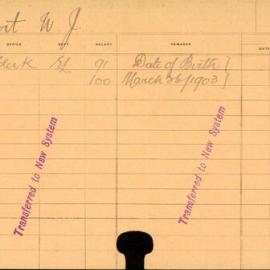 ort W. J.
OFFICE DEPT SALARY REMARKS DATE
Clerk 91 Date of Birth }
100 March 26/1903 }
Transferred to New System
Transferred to New System